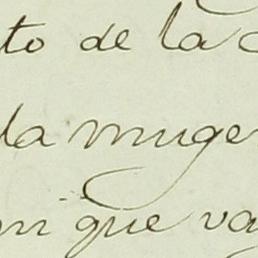 to de la
la muge
que va